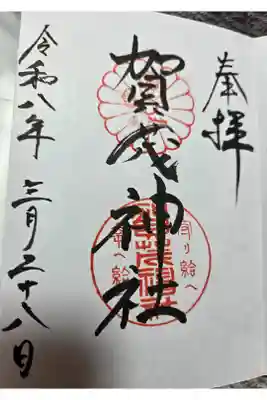 奉拝
賀茂神社
守り給へ
幸へ給へ
令和八年 三月二十八日